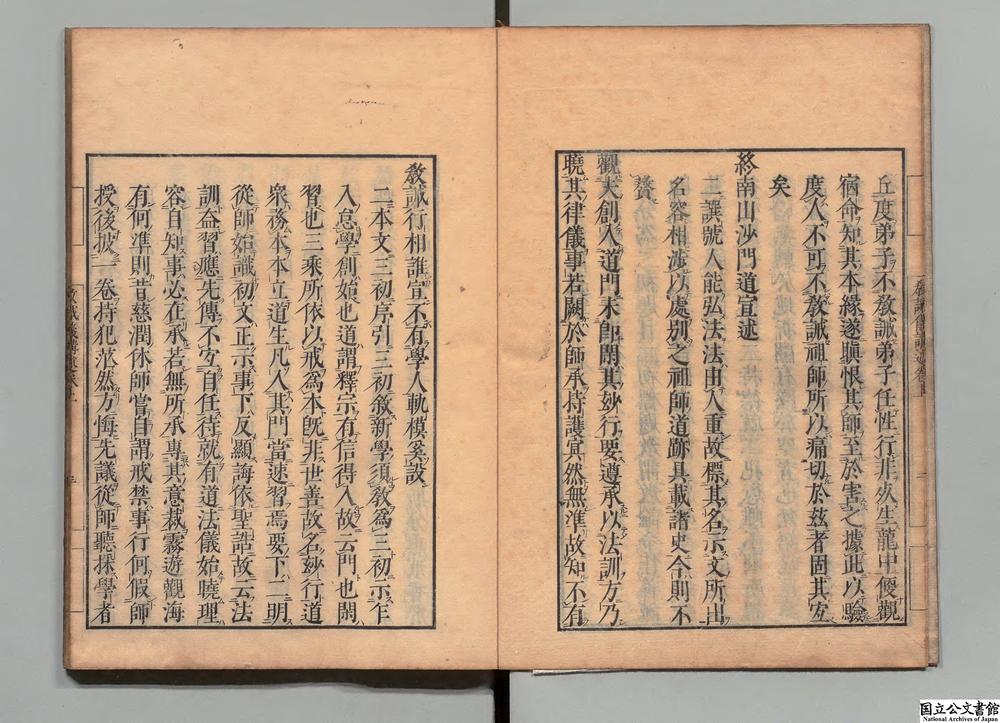 丘度弟子不敎誡弟子任性行非死生龍中儍觀
宿命知其本緣遂瞋恨其師至於害之據此以驗
度人不可不敎誡祖師所以痛切於玆者固其宜
矣
終南山沙門道宣述
三譔號人能弘法法由人重故標其名示文所出
名容相濫以處別之祖師道跡具載諸史今則不
贅
觀夫創入道門未卽閑其妙行要遵承以法訓方乃
曉其律儀事若闕於師承持護冥然無準故知不有
敎誡行相誰宣不有學人軌模奚設
二本文三初序引三初敘新學須敎爲三初示乍
入怠學創始也道謂釋宗有信得入故云門也閑
習也三乘所依以戒爲本旣非世善故名妙行道
衆務本本立道生凡入其門當速習焉要下二明
從師始識初文正示事下反顯誨依聖誥故云法
訓益習應先傳不宜自任待就有道法儀始曉理
容自知事必在承若無所承專其意裁霧遊觀海
有何準則昔慈潤休師嘗自謂戒禁事行何假師
授後披一卷持犯茫然方悔先議從師聽採學者
国立公文書館
National Archives of Japan